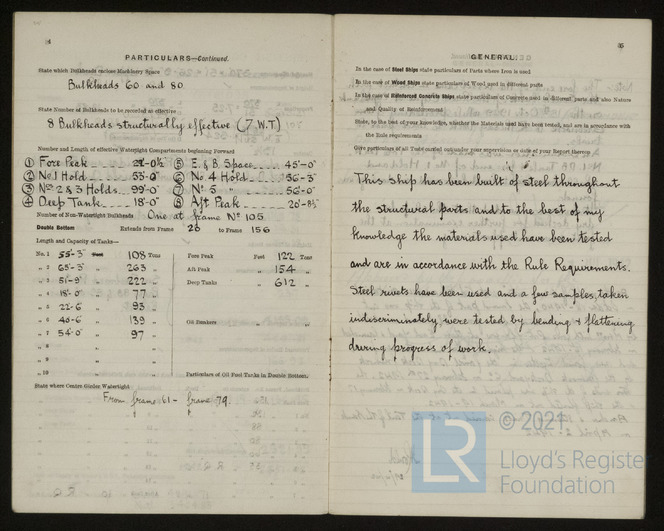 84
PARTICULARS—Continued.
State which Bulkheads enclose Machinery Space
Bulkheads 60 and 80
State Number of Bulkheads to be recorded as effective
8 Bulkheads structurally effective (7 W.T)
Number and Length of effective Watertight Compartments beginning Forward
① Fore Peak 21'-0½ ⑤ E. & B. Space 45'-0"
② No.1 Hold 55'-0" ⑥ No. 4 Hold 56'-3"
③ Nos 2 & 3 Holds 99'-0" ⑦ No 5 " 56'-0"
④ Deep Tank 18'-0" ⑧ Aft Peak 20'-8½"
Number of Non-Watertight Bulkheads One at frame No 105
Double Bottom Extends from Frame 26 to Frame 156
Length and Capacity of Tanks—
No. 1 55'-3" Feet 108 Tons Fore Peak Feet 122 Tons
" 2 65'-3" " 263 " Aft Peak " 154 "
" 3 51'-9" " 222 " Deep Tanks " 612 "
" 4 18'-0" " 77 "
" 5 22'-6 " 93 "
" 6 40'-6 " 139 " Oil Bunkers " "
" 7 54'-0" " 97 "
" 8 " "
" 9 " "
" 10 " " Particulars of Oil Fuel Tanks in Double Bottom.
State where Centre Girder Watertight
From frame 61 - frame 79.
85
GENERAL.
In the case of Steel Ships state particulars of Parts where Iron is used
In the case of Wood Ships state particulars of Wood used in different parts
In the case of Reinforced Concrete Ships state particulars of Concrete used in different parts and also Nature
and Quality of Reinforcement
State, to the best of your knowledge, whether the Materials used have been tested, and are in accordance with
the Rule requirements
Give particulars of all Tests carried out under your supervision or date of your Report thereon
This ship has been built of steel throughout
the structural parts and to the best of my
knowledge the materials used have been tested
and are in accordance with the Rule Requirements.
Steel rivets have been used and a few samples, taken
indiscriminately, were tested by bending & flattening
during progress of work.
LR
© 2021
Lloyd's Register
Foundation